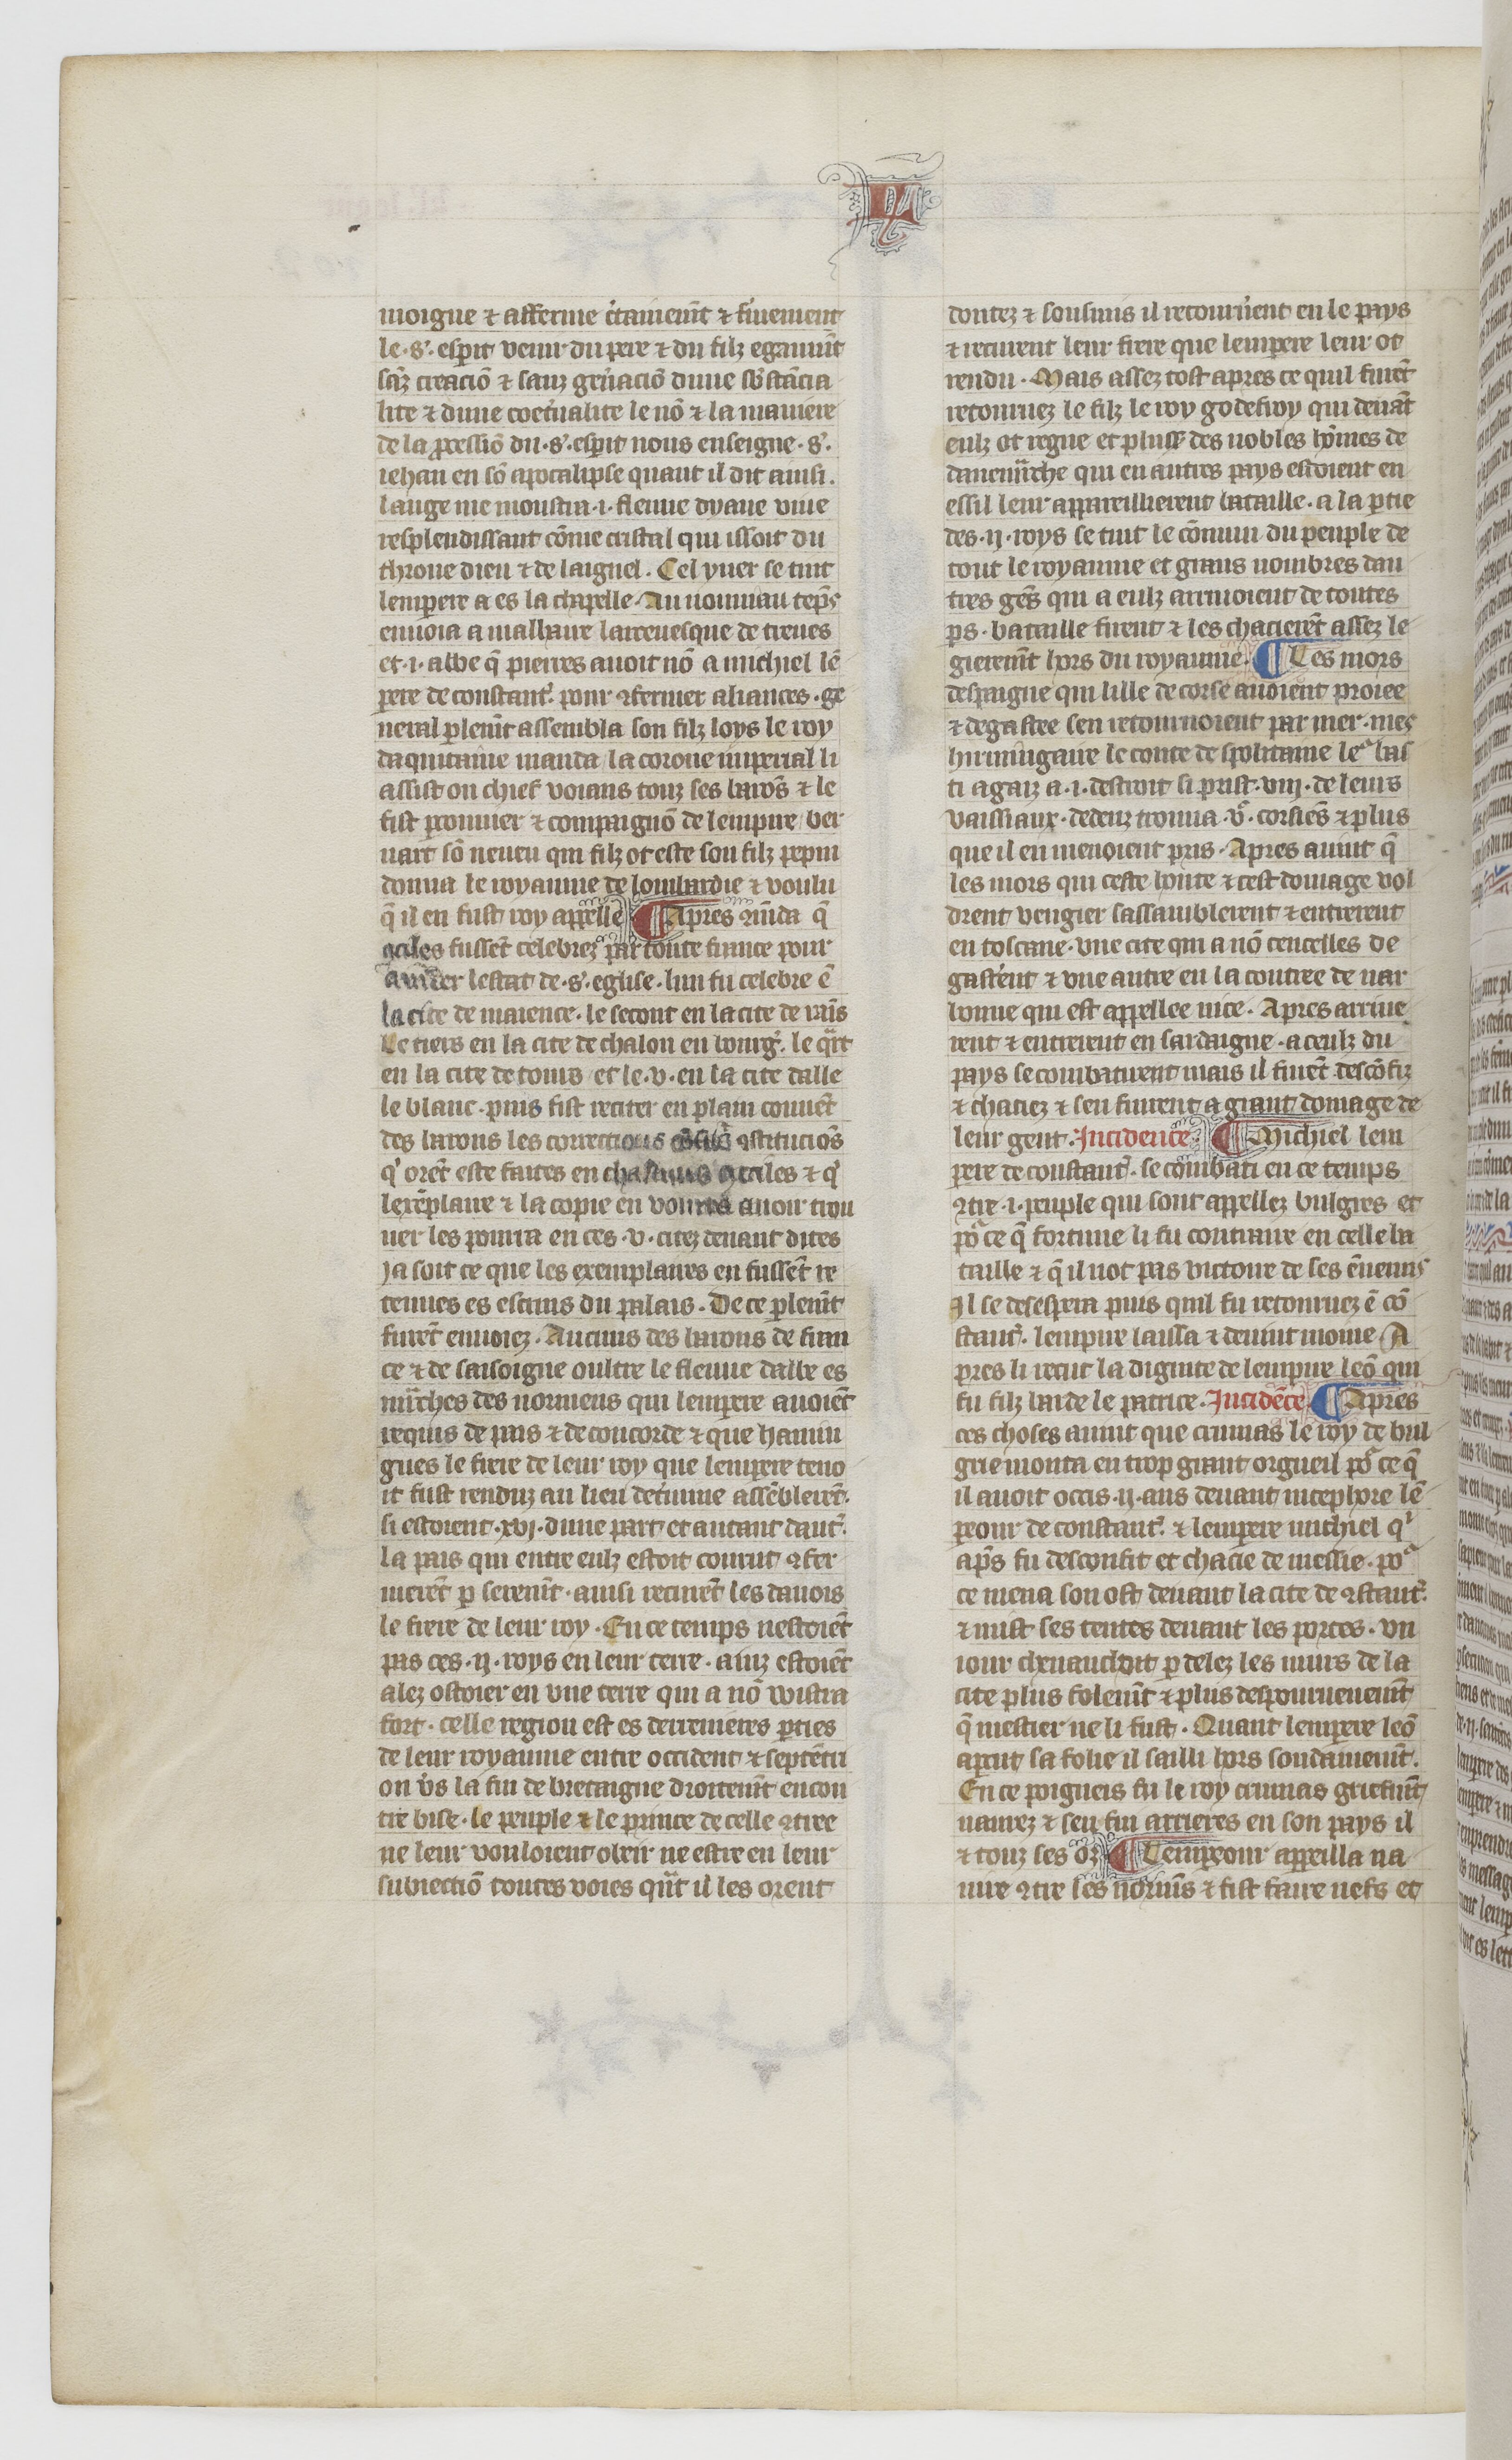 L
moigne ⁊ afferme c̾tainem̃t ⁊ fiuement
le .s̾. esp̃rit venir du pere ⁊ du filz egaum̃t
sãz creaciõ ⁊ sanz gen̾aciõ dune sb̾stãcia
lite ⁊ dune coet̾nalite le nõ ⁊ la maniere
de la p̱cessiõ du .s̾. esp̃it nous enseigne .s̾.
iehan en sõ apocalipse quant il dit ainsi.
lange me monstra .i. fleuue dyaue viue
resplendissant cõme cristal qui issoit du
throne dieu ⁊ de laignel. Cel yuer se tint
lempere a es la chapelle. Au nouuiau tẽps
enuoia amalhaire larceuesque de treues
et .i. abbe q̃ pierres auoit nõ a michiel lẽ
pere de constant̾. pour ꝯfermer aliances. ge
neral ꝑlem̃t assembla son filz loys le roy
daquitaine manda la corone imperial li
assist ou chief voians touz ses barõs ⁊ le
fist parconnier ⁊ compaignõ de lempire ber
nart sõ neueu qui filz ot este son filz pepin
donna le royaume de lombardie ⁊ voulu
q̃ il en fust roy appelle ¶ Apres ꝯm̃da q̃
ꝯciles fussẽt celebrez par toute france pour
amẽder lestat de .s̾. eglise. lun fu celebre ẽ
la cite de maience. le secont en la cite de rais̃
Le tiers en la cite de chalon en bourg̾. le q̃rt
en la cite de tours et le .v. en la cite dalle
le blanc. puis fist reciter en plain conuẽt
des barons les corrections ꝯstituciõs
q̾ orẽt este faites en chascuns ꝯciles ⁊ q̾
lexẽplaire ⁊ la copie en vourra auoir trou
uer les pourra en ces .v. citez deuant dites
ja soit ce que les exemplaires en fussẽt re
tenues es escrins du palais. De ce ꝑlem̃t
furẽt enuoiez. Aucuns des barons de fran
ce ⁊ de saisoigne oultre le fleuue dalbe es
mãrches des normens qui lempere auoiẽt
requis de pais ⁊ de concorde ⁊ que hamin
gues le frere de leur roy que lempere teno
it fust renduz au lieu det̾mine assẽblerẽt.
si estoient .xvj. dune part et autant daut̾.
la pais qui entre eulz estoit courut ꝯfer
merẽt ꝑ serem̃t. ainsi recurẽt les danois
le frere de leur roy. En ce temps nestoiẽt
pas ces .ij. roys en leur terre. ainz estoiẽt
alez ostoier en vne terre qui a nõ wistra
fort. celle region est es derrenieres ꝑties
de leur royaume entre occident ⁊ septẽtri
on v̾s la fin de bretaigne droitem̃t encon
tre bise. le peuple ⁊ le prince de celle ꝯtree
ne leur vouloient obeir ne estre en leur
subiectiõ toutes voies qũt il les orent
dontez ⁊ sousmis il retourn̾ent en le pays
⁊ recurent leur frere que lempere leur ot
rendu. Mais assez tost apres ce quil furẽt
retournez le filz le roy godefroy qui deuãt
eulz ot regne et pluss̾ des nobles hõmes de
danemãrche qui en autres pays estoient en
essil leur appareillierent bataille. a la ꝑtie
des .ij. roys se tint le cõmun du peuple de
tout le royaume et grans nombres dau
tres gẽs qui a eulz arriuoient de toutes
ps. bataille firent ⁊ les chacierẽt assez le
gierem̃t hors du royaume. ¶ Les mors
despaigne qui lille de corse auoient proiee
⁊ degastee sen retournoient par mer. mes
hirmingaire le conte despolitaine le᷑ bas
ti agaiz a .i. destroit si prist .viij. de leurs
vaissiaux. dedenz trouua .vͦ. corsiẽs ⁊ plus
que il en menoient pris. Apres auint q̃
les mors qui ceste honte ⁊ cest domage vol
drent vengier sassamblerent ⁊ entrerent
en toscane. vne cite qui a nõ centcelles de
gast̾ent ⁊ vne autre en la contree de nar
bonne qui est appellee nice. Apres arriue
rent ⁊ entrerent en sardaigne. a ceulz du
pays se combatirent mais il furẽt descõfiz
⁊ chaciez ⁊ sen fuirent a grant domage de
leur gent. Incidence ¶ Michiel lem
pere de constant̾. se combati en ce temps
ꝯtre .i. peuple qui sont appellez bulgres et
põ ce q̃ fortune li fu contraire en celle ba
taille ⁊ q̃ il not pas victoire de ses ẽnemis
Il se desespera puis quil fu retournez ẽ cõ
stant̾. lempire laissa ⁊ deuint moine A
pres li recut la dignite de lempire leõ qui
fu filz barde le patrice. Incidẽce ¶ Apres
ces choses auint que crumas le roy de bul
grie monta en trop grant orgueil po᷑ ce q̃
il auoit occis .ij. ans deuant nicephore lẽ
peour de constant̾. ⁊ lempere michiel q̾
apr̃s fu desconfit et chacie de messie. po᷑
ce mena son ost deuant la cite de ꝯstant̾.
⁊ mist ses tentes deuant les portes. vn
iour cheuauchoit ꝑ delez les murs de la
cite plus folem̃t ⁊ plus despourueuem̃t
q̃ mestier ne li fust. Quant lempere leõ
aꝑcut sa folie il sailli hors soudainem̃t.
En ce poigneis fu le roy crumas griefm̃t
naurez ⁊ sen fui arrieres en son pays il
⁊ touz ses oz ¶ Lempeour appeilla na
uire ꝯtre les normãs ⁊ fist faire nefs et